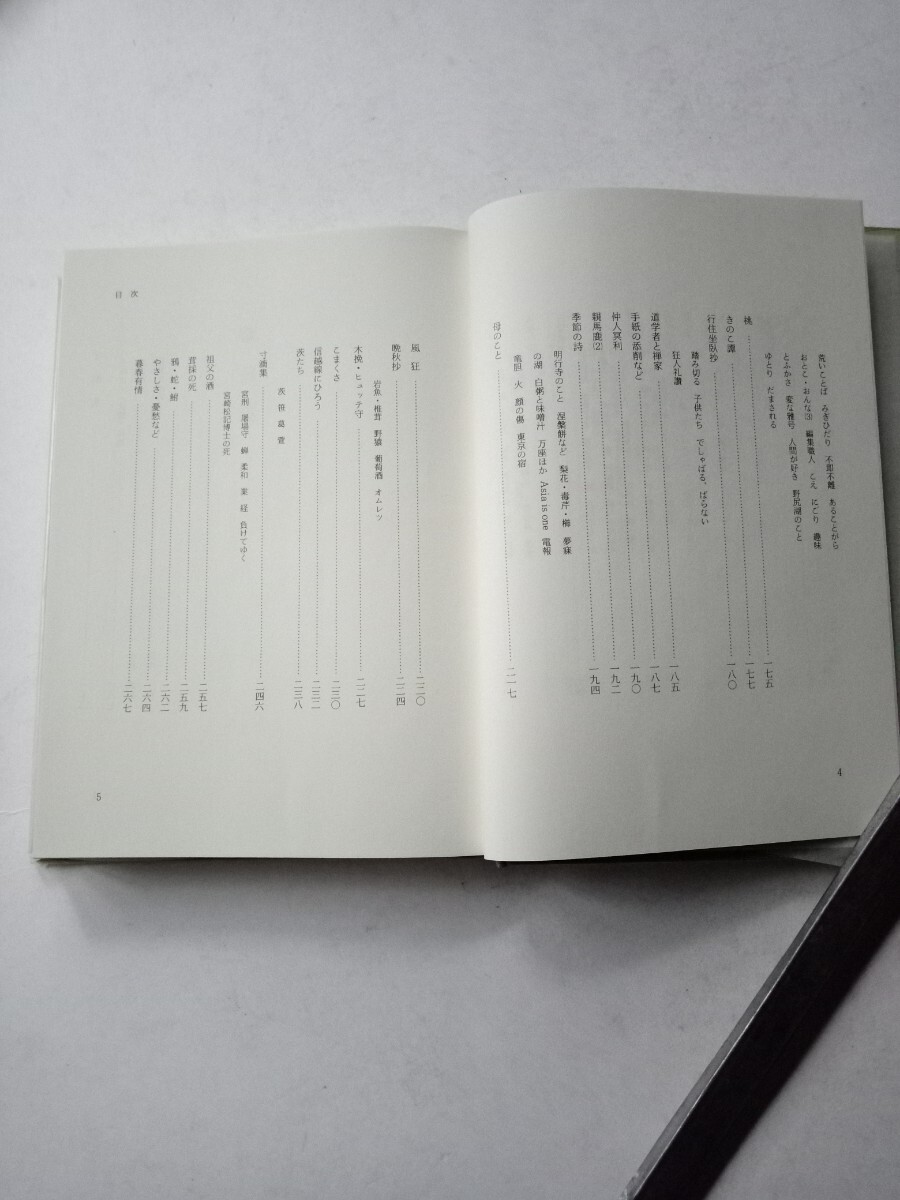 荒いことば みぎひだり 不即不離 あることがら
おとこ・おんな⑶ 編集職人 こえ にごり 趣味
とふかさ 変な雅号 人間が好き 野尻湖のこと
ゆとり だまされる
桃……一七五
きのこ譚……一七七
行住坐臥抄……一八〇
踏み切る 子供たち でしゃばる、ばらない
狂人礼讃……一八五
道学者と禅家……一八七
手紙の添削など……一九〇
仲人冥利……一九二
親馬鹿⑵……一九四
季節の詩
明行寺のこと 涅槃餅など 梨花・毒芹・櫛 夢寐
の湖 白粥と味噌汁 万座ほか Asia is one 電報
竜胆 火 顔の傷 東京の宿
母のこと……二一七
4
風狂……二二〇
晩秋抄……二二四
岩魚・椎茸 野猿 葡萄酒 オムレツ
木挽・ヒュッテ守……二二七
こまくさ……二三〇
信越線にひろう……二三二
茨たち……二三八
茨 笹 葛 萱
寸滴集……二四六
宮刑 屠場守 蟬 柔和 薬 経 負けてゆく
宮崎松記博士の死
祖父の酒……二五七
茸採の死……二五九
鴉・蛇・鮒……二六二
やさしさ・憂愁など……二六四
暮春有情……二六七
目次
5